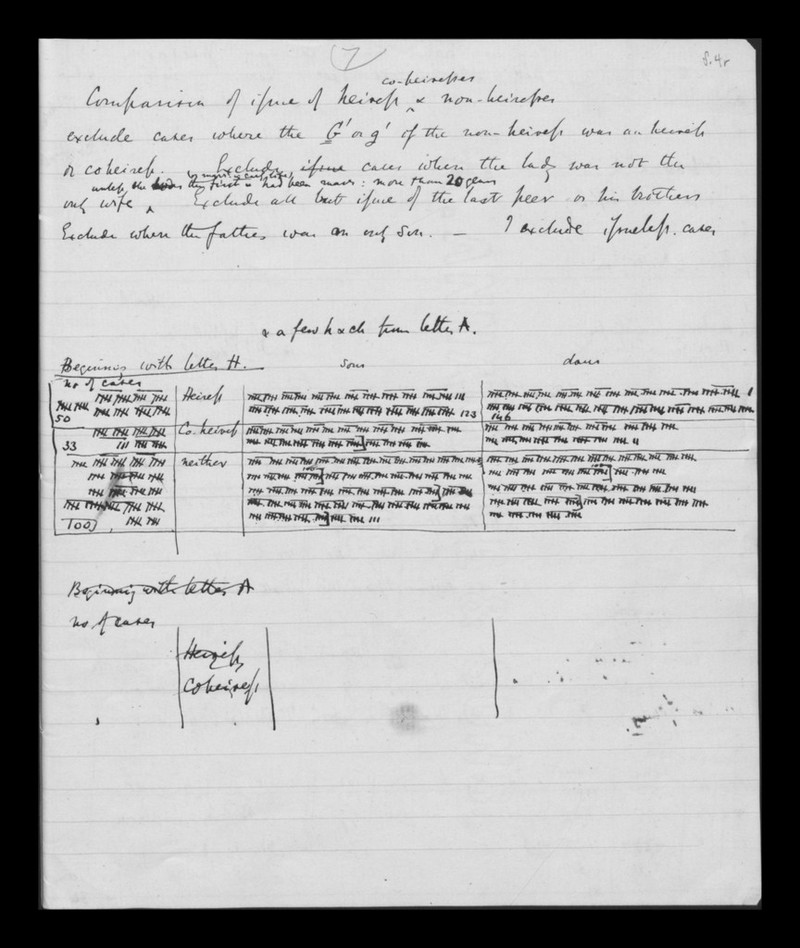 7
S.4r
co-heiresses
Comparison of issue of heiress & non-heiresses
exclude cases where the G' or g' of the non-heiress was an heiress
or coheiress. Exclude issue cases when the lady was not the
unless the they first had been marr: more than 20 years
only wife Exclude all but issue of the last peer or his brothers
Exclude when the father was an only son. — I exclude issueless cases
& a few h & ch from letter A.
Beginning with letter H. sons daus
no of cases
Heiress
50 123 146
Co. heiress
33
neither
100
100 100
Beginning with letter A
no of cases
Heiress
Coheiress